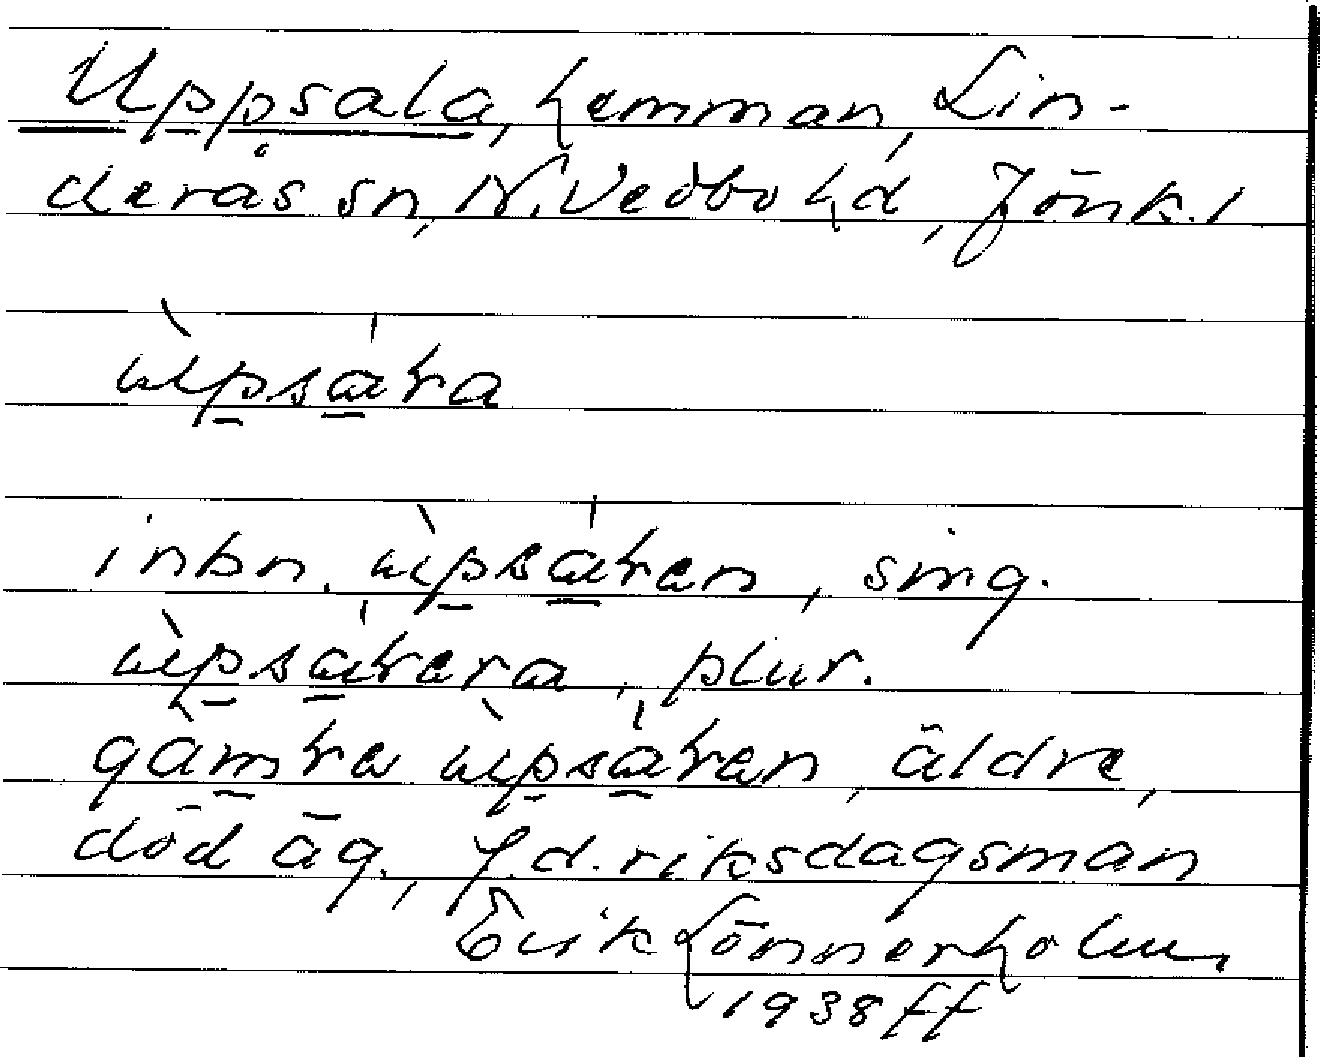 Uppsala, hemman, Lin-
derås sn, N. Vedbo hd, Jönk. l
ùpsára
inbn. ùpsáran, sing.
ùpsárara, plur.
gàmra ùpsáran, äldre,
död äg., f.d. riksdagsman
Erik Lönnerholm
1938 ff